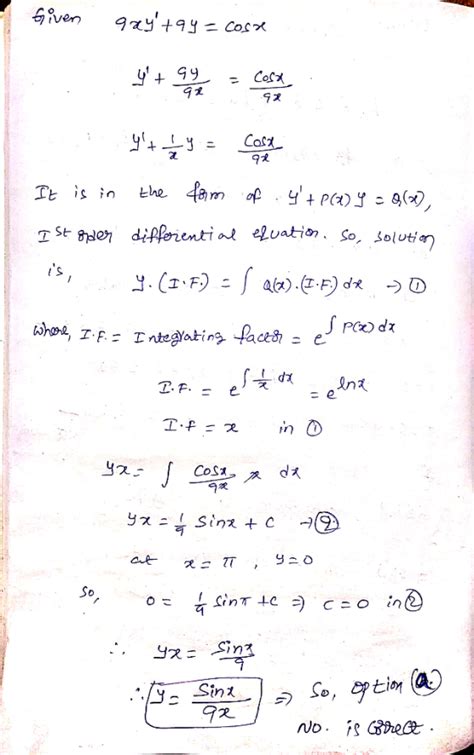 Given 9xy' + 9y = cosx
y' + 9y/9x = cosx/9x
y' + 1/x y = cosx/9x
It is in the form of y' + P(x) y = Q(x),
Ist order differential equation. So, solution
is, y.(I.F.) = ∫ Q(x).(I.F) dx → ①
where, I.F. = Integrating factor = e^∫ P(x) dx
I.F. = e^∫ 1/x dx = e^lnx
I.f = x in ①
yx = ∫ cosx/9x x dx
yx = 1/9 Sinx + c → ②
at x = π , y = 0
So, 0 = 1/9 sinπ + c ⇒ c = 0 in ②
∴ yx = Sinx/9
∴ y = Sinx/9x ⇒ So, option (a)
NO. is correct.